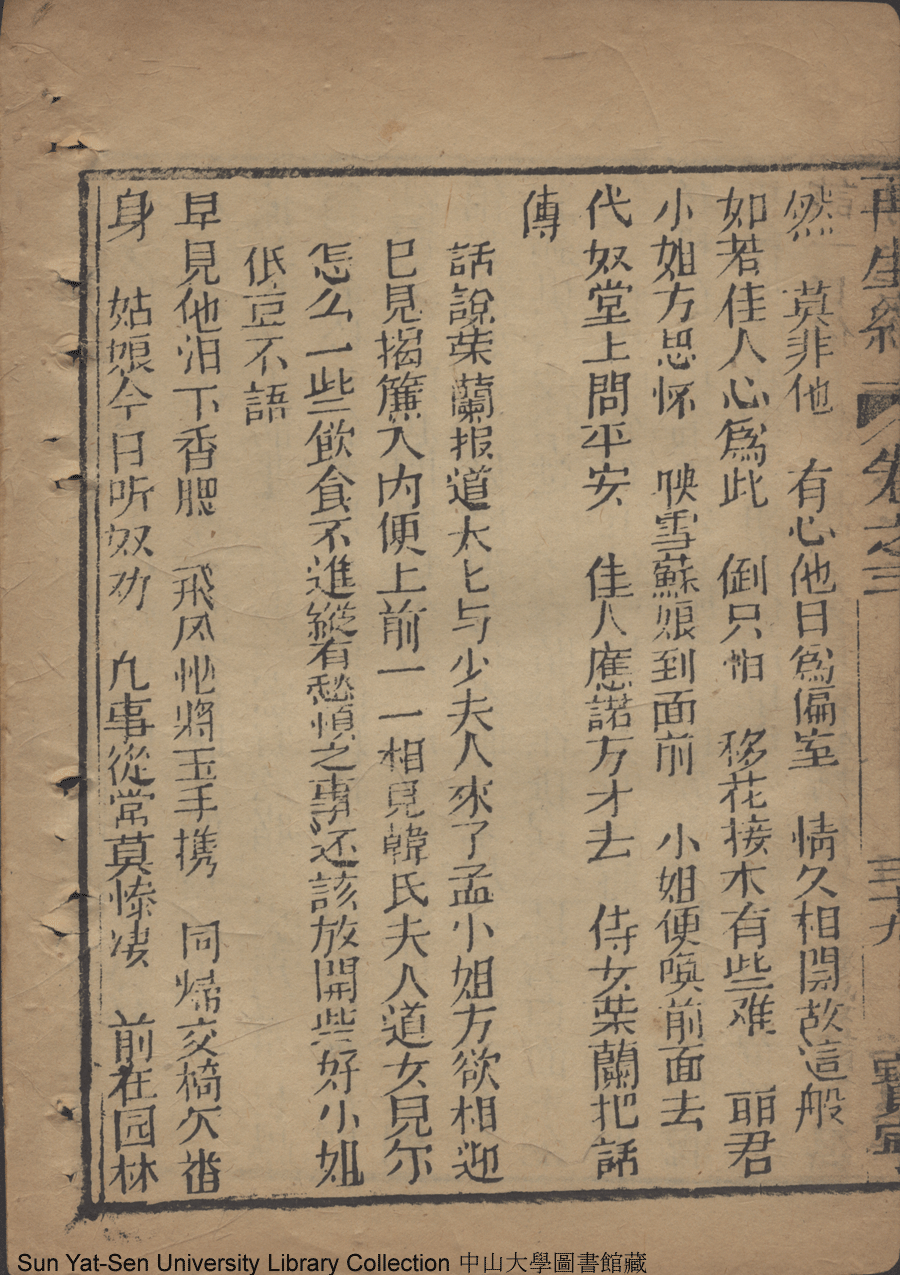 再生緣 卷之三 三十九 寶寧
然 莫非他 有心他日爲偏室 情久相関故這般
如若佳人心爲此 倒只怕 移花接木有些难 丽君
小姐方思怀 映雪蘇娘到面前 小姐便喚前面去
代奴堂上問平安 佳人應諾方才去 侍女柴蘭把話
傳
話說荣蘭报道太匕与少夫人來了孟小姐方欲相迎
已見揭簾入内便上前一一相見韓氏夫人道女児尔
怎么一些飲食不進縱有愁煩之事还該放開些好小姐
低豆不語
早見他汨下香腮 飛风忙將玉手携 同帰交椅欠
身 姑娘今日听奴劝 凢事從常莫惨凄 前在园林
Sun Yat-Sen University Library Collection 中山大學圖書館藏